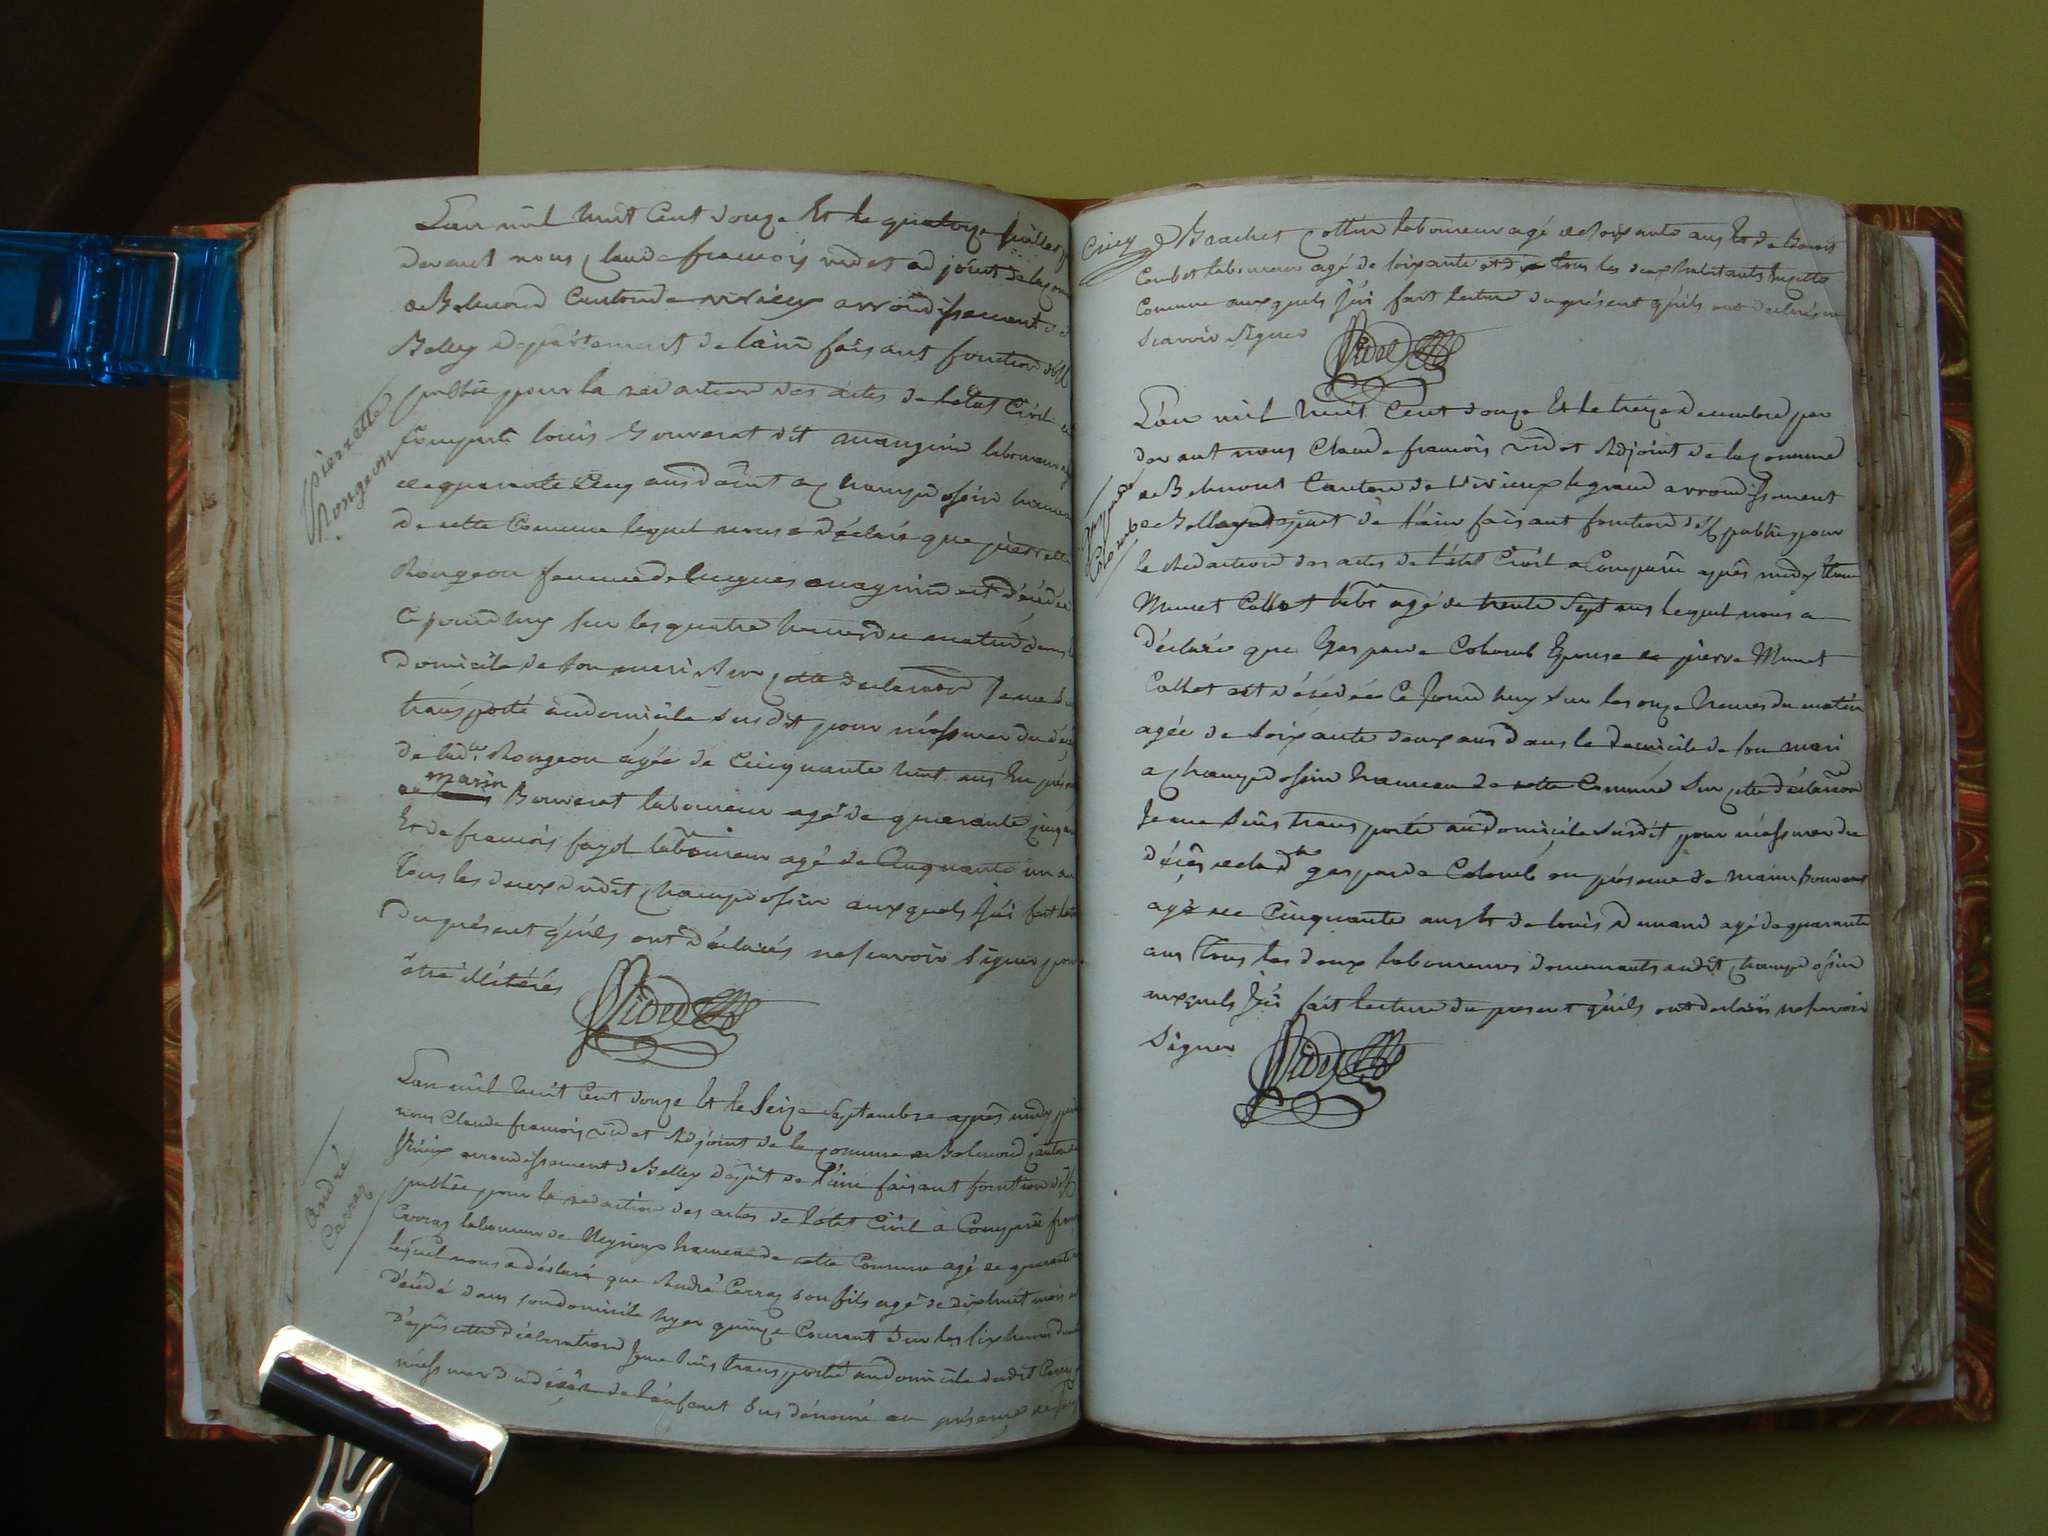 Lan mil huit Cent douze Et le quatorze juillet
devant nous Claude françois videt adjoint de la
de Belmond Canton de virieux arrondissement de
Belley département de lain faisant fonction d'off
publix pour la redaction des actes de l'état Civil a
Comparu louis Bouverat dit mangind laboureur agé
de quarante Cinq ans d'oint a Champdosin hameau
de cette Commune lequel nous a déclaré que pierrette
Rongeon femme de mugnind est décédée
Ce jourdhuy sur les quatre heures du matind dans le
domicile de son mari Sur cette declaration Je me suis
transporté audomicile susdit pour m'assurer du décès
de lad.te Rongeon agée de Cinquante huit ans En présence
de marin Bouverat laboureur agé de quarante cinq ans
Et de françois fayol laboureur agé de Cinquante un an
Tous les deux dudit Champdosin auxquels J'ai fait lecture
du présent qu'ils ont déclarés ne scavoir signer pour
être illitérés
Videt
pierrette
Rongeon
Lan mil huit Cent douze Et le Seize Septembre après midy par
nous Claude françois videt Adjoint de la Comune de Belmond canton de
Virieux arrondissement de Belley dep.t de l'ain faisant fonction d'off
publix pour la redaction des actes de l'état Civil à Comparu
Carraz laboureur de Neyrieux hameau de cette Commune agé de quarante
lequel nous a déclaré que André Carraz son fils agé de dix huit mois est
décédé dans son domicile hyer quinze Courant Sur les six heures du
D'après cette déclaration Je me suis transporté audomicile dudit Carraz
m'assurer du décès de l'enfant Sus dénomé en présence de
André
Carraz
Brachet Cottin laboureur agé de soixante ans Et de Benoit
Combet laboureur agé de soixante et dix tous les deux habitants
Comune auxquels J'ai fait lecture du présent qu'ils ont déclarés ne
scavoir Signer
Videt
L'an mil huit Cent douze Et le treize decembre par
devant nous Claude françois videt Adjoint de la Comune
de Belmont Canton de Virieux le grand arrondissement
de Belley dep.t de l'ain faisant fonction d'off publix pour
la Redaction des actes de l'état Civil a Comparu après midy
Munet Collet lab.r agé de trente Sept ans lequel nous a
déclaré que Gasparde Colomb Epouse de pierre Munet
Collet est décédée Ce Jourd huy Sur les onze heures du matin
agée de soixante deux ans dans le domicile de son mari
a Champdosin hameau de cette Comune Sur cette déclaration
Je me suis transporté audomicile Susdit pour m'assurer du
décès de lad.te gasparde Colomb en présence de marin Bouverat
agé de Cinquante ans Et de louis Dumand agé de quarante
ans Tous les deux laboureurs demeurants audit Champdosin
auxquels J'ai fait lecture du present qu'ils ont declarés ne scavoir
Signer
Videt
Gasparde
Colomb